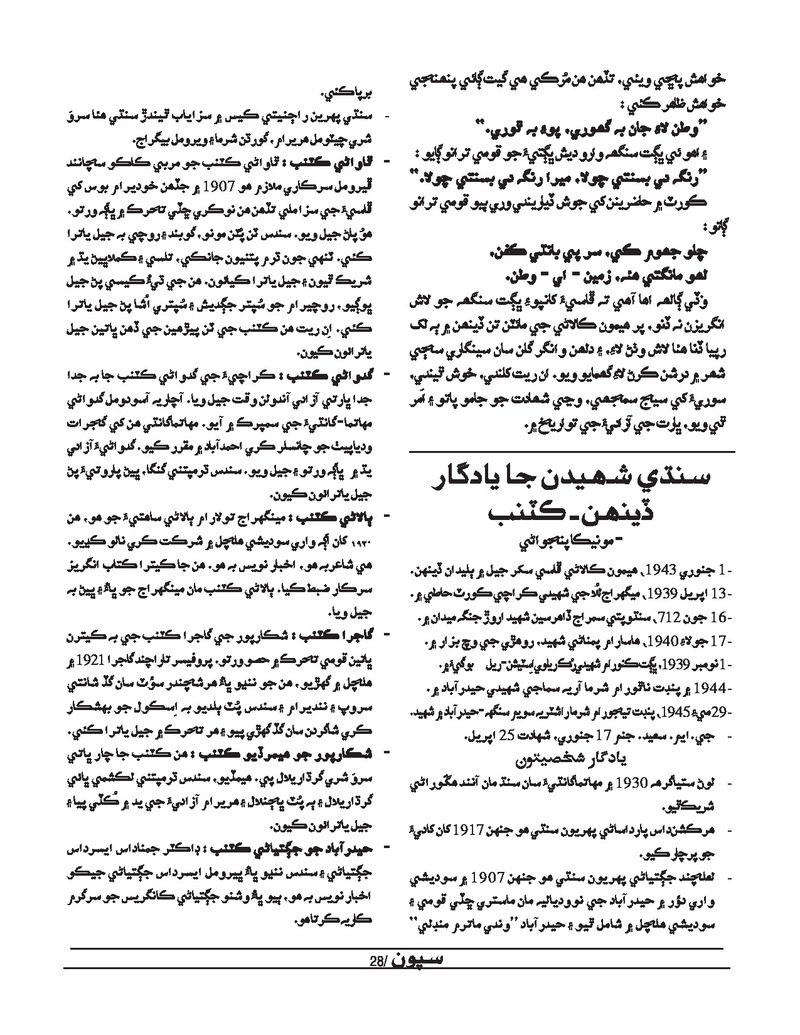 خواهش پڇي ويني، تڏهن هن مُرڪي هي گيت ڳائي پنهنجي
خواهش ظاهر ڪئي :
”وطن لاءِ جان به گهوري، پوءِ به ٿوري.“
۽ اهو ئي ڀڳت سنگهہ وارو ديش ڀڳتيءَ جو قومي ترانو ڳايو :
”رنگہ دي بسنتي چولا، ميرا رنگہ دي بسنتي چولا.“
ڪورٽ ۾ حاضرينن کي جوش ڏياريندي وري ٻيو قومي ترانو
ڳاتو :
چلو جهوم ڪي، سر پي باندي ڪفن،
لهو مانگتي هئہ، زمين - اي - وطن.
وڏي ڳالهہ اها آهي تہ ڦاسيءَ کانپوءِ ڀڳت سنگهہ جو لاش
انگريزن نہ ڏنو، پر هيمون ڪالاڻي جي مائٽن ٽن ڏينهن ۾ ٻہ لک
رپيا ڏنا هئا لاش وٺڻ لاءِ، ۽ دلهن وانگر گلن سان سينگاري سڄي
شهر ۾ درشن ڪرڻ لاءِ گهمايو ويو. ان ريت کلندي، خوش ٿيندي،
سوريءَ کي سيج سمجهي، وڃي شهادت جو جامو پاتو ۽ اَمر
ٿي ويو، ڀارت جي آزاديءَ جي تواريخ ۾.
سنڌي شهيدن جا يادگار
ڏينهن ـ ڪٽنب
-مونيڪا پنجواڻي
-1 جنوري 1943، هيمون ڪالاڻي ڦاسي سکر جيل ۾ بليدان ڏينهن.
-13 اپريل 1939، ميگهراج لُلا جي شهيدي ڪراچي ڪورٽ حاطي ۾.
-16 جون 712، سنڌوپتي سمراٽ ڏاهر سين شهيد اروڙ جنگہ ميدان ۾.
-17 جولاءِ 1940، هاسارام پمناڻي شهيد، روهڙي جي وچ بزار ۾.
-1 نومبر 1939، ڀڳت ڪنورام شهيد رُڪ ريلوي اسٽيشن-ريل بوگيءَ ۾.
-1944 ۾ پنڊت ناٿورام شرما آريہ سماجي شهيدي حيدرآباد ۾.
-29 مئي 1945، پنڊت تيجورام شرما راشٽريہ سويم سنگهہ-حيدرآباد ۾ شهيد.
- جي. ايم. سعيد. جنم 17 جنوري، شهادت 25 اپريل.
يادگار شخصيتون
- لوڻ ستياگرهہ 1930 ۾ مهاتما گانڌيءَ سان سنڌ مان آنند هنگوراڻي
شريڪ ٿيو.
- هرڪشنداس پارداساڻي پهريون سنڌي هو جنهن 1917 کان کاديءَ
جو پرچار ڪيو.
- لعلچند جڳتياڻي پهريون سنڌي هو جنهن 1907 ۾ سوديشي
واري دؤر ۾ حيدرآباد جي نوودياليہ مان ماستري ڇڏي قومي ۽
سوديشي هلچل ۾ شامل ٿيو ۽ حيدرآباد ”وندي ماترم منڊلي“
برپا ڪئي.
- سنڌي پهرين راجنيتي ڪيس ۾ سزاياب ٿيندڙ سنڌي هئا سرو
شري چيٽومل هريرام، گورڌن شرما ۽ ويرومل بيگراج.
- ڦاواڻي ڪٽنب : ڦاواڻي ڪٽنب جو مربي ڪاڪو سڃانند
ڦيرومل سرڪاري ملازم هو 1907 ۾ جڏهن خوديرام بوس کي
ڦاسيءَ جي سزا ملي تڏهن هن نوڪري ڇڏي تحرڪ ۾ ڀاڳہ ورتو.
هوُ پاڻ جيل ويو. سندس ٽن پٽن مونو، گوبند ۽ روچي بہ جيل ياترا
ڪئي، ٽنهي جون ڌرم پتنيون جانڪي، تلسي ۽ ڪملا ڀيڻ يڌ ۾
شريڪ ٿيون ۽ جيل ياترا ڪيائون. هن جي ڌيءَ ڪيسي پڻ جيل
ڀوڳيو، روچيرام جو سُپتر جڳديش ۽ سُپتري اُشا پڻ جيل ياترا
ڪئي. اِن ريت هن ڪٽنب جي ٽن پيڙهين جي ڏهن ڀاتين جيل
ياترائون ڪيون.
- گدواڻي ڪٽنب : ڪراچيءَ جي گدواڻي ڪٽنب جا بہ جدا
جدا ڀارتي آزادي آندولن وقت جيل ويا. آچاريہ آسودومل گدواڻي
مهاتما-گانڌيءَ جي سمپرڪ ۾ آيو. مهاتما گانڌي هن کي گجرات
وديا پيٺ جو چانسلر ڪري احمدآباد ۾ مقرر ڪيو. گدواڻيءَ آزادي
يڌ ۾ ڀاڳہ ورتو ۽ جيل ويو. سندس ڌرمپتني گنگا، ڀيڻ پاروتيءَ پڻ
جيل ياترائون ڪيون.
- ٻالاڻي ڪٽنب : مينگهراج تولارام ٻالاڻي ساهتيءَ جو هو، هن
١٩٣٠ کان اڳہ واري سوديشي هلچل ۾ شرڪت ڪري نالو ڪڍيو.
هي شاعر بہ هو، اخبار نويس بہ هو. هن جا ڪيترا ڪتاب انگريز
سرڪار ضبط ڪيا. ٻالاڻي ڪٽنب مان مينگهراج جو ڀاءُ ۽ ڀيڻ بہ
جيل ويا.
- گاجرا ڪٽنب : شڪارپور جي گاجرا ڪٽنب جي بہ ڪيترن
ڀاتين قومي تحرڪ ۾ حصو ورتو. پروفيسر تاراچند گاجرا 1921 ۾
هلچل ۾ گهڙيو، هن جو ننڍيو ڀاءُ هرشچندر سؤٽ سان گڏ شانتي
سروپ ۽ نندڊيرام ۽ سندس پُٽ بلديو بہ اِسڪول جو بهشڪار
ڪري شاگردن سان گڏ گهڙي پيو ۽ هر تحرڪ ۾ جيل ياترا ڪئي.
- شڪارپور جو هيمرڏيو ڪٽنب : هن ڪٽنب جا چار ڀاتي
سرو شري گرڌاريلال پي. هيمڏيو، سندس ڌرمپتني لڪشمي ٻائي
گرڌاريلال ۽ ٻہ پُٽ ڀاڄنلال ۽ هريرام آزاديءَ جي يد ۾ ڪُڏي پيا ۽
جيل ياترائون ڪيون.
- حيدرآباد جو جڳتياڻي ڪٽنب : ڊاڪٽر جمناداس ايسرداس
جڳتياڻي ۽ سندس ننڍيو ڀاءُ ڀيرومل ايسرداس جڳتياڻي جيڪو
اخبار نويس بہ هو، ٻيو ڀاءُ وشنو جڳتياڻي ڪانگريس جو سرگرم
ڪاريہ ڪرتا هو.
سپون /28